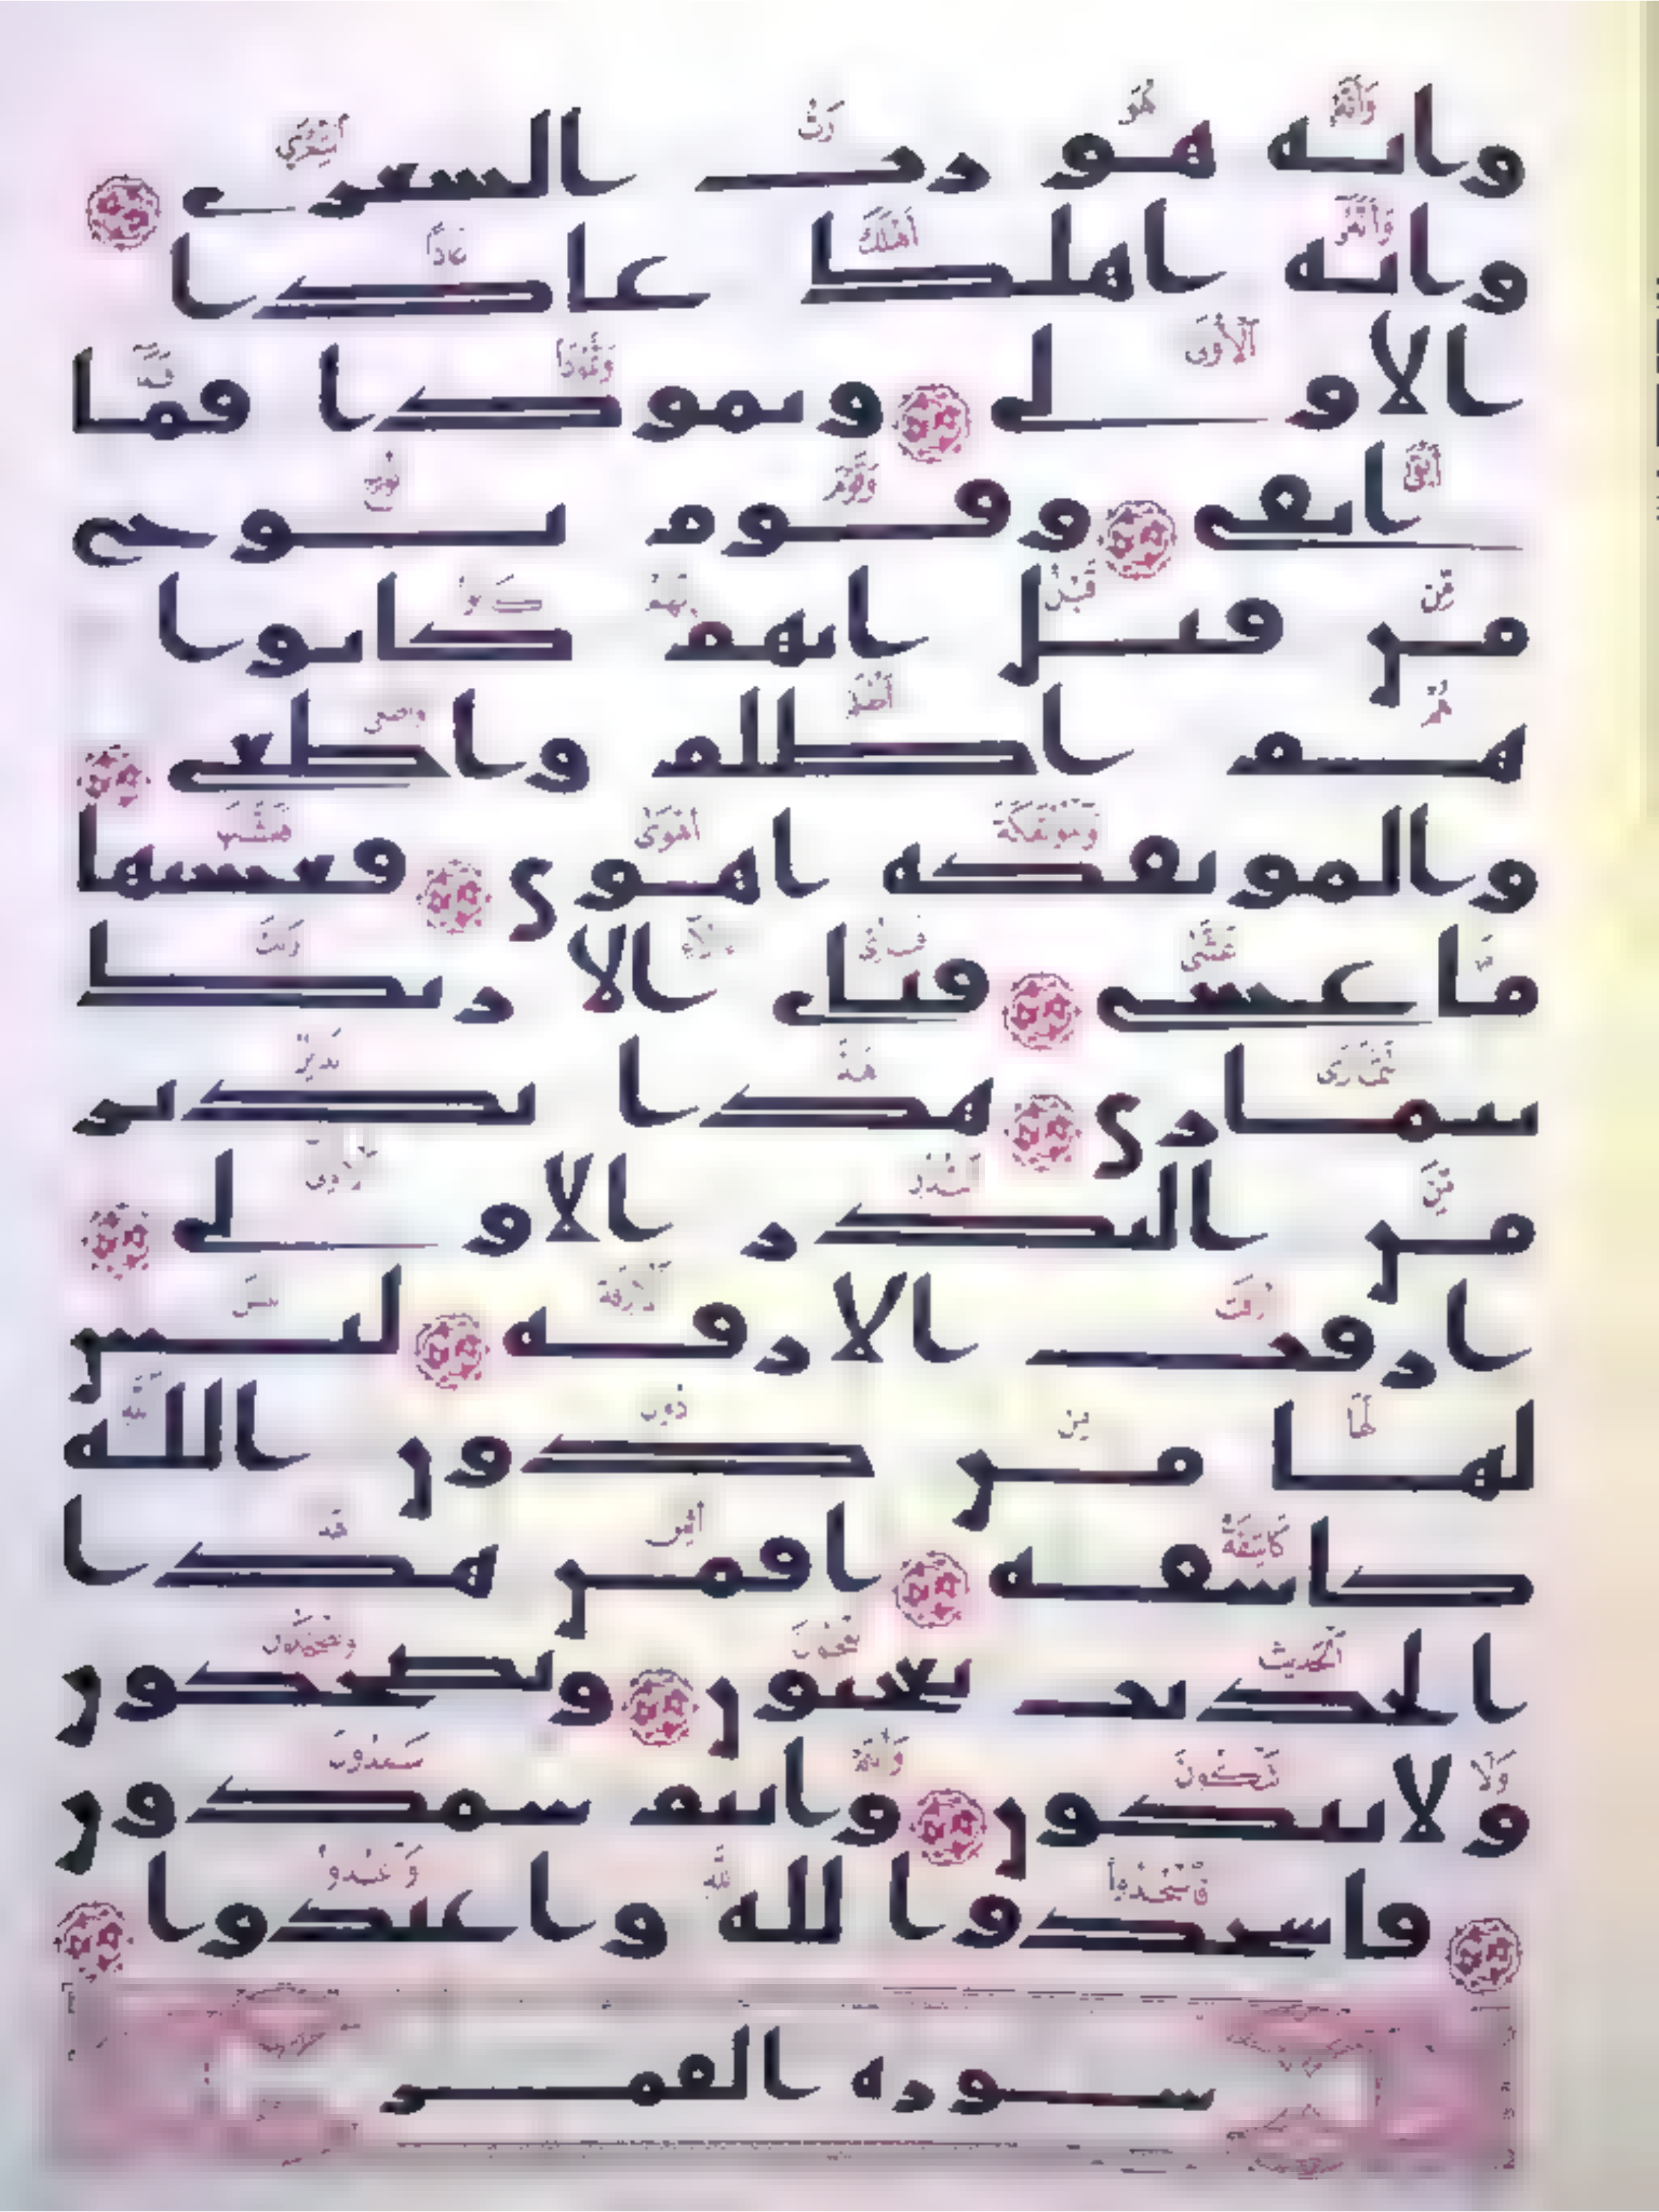 وانه هو رب الشعرى
وانه اهلك عادا
الاولى وثمودا فما
ابقى وقوم نوح
من قبل انهم كانوا
هم اظلم واطغى
والموتفكة اهوى فغشيها
ما غشى فباى الا ربك
تتمارى هذا نذير
من النذر الاولى
ازفت الازفة ليس
لها من دون الله
كاشفة افمن هذا
الحديث تعجبون وتضحكون
ولا تبكون وانتم سمدون
فاسجدوا لله واعبدوا
سورة القمر